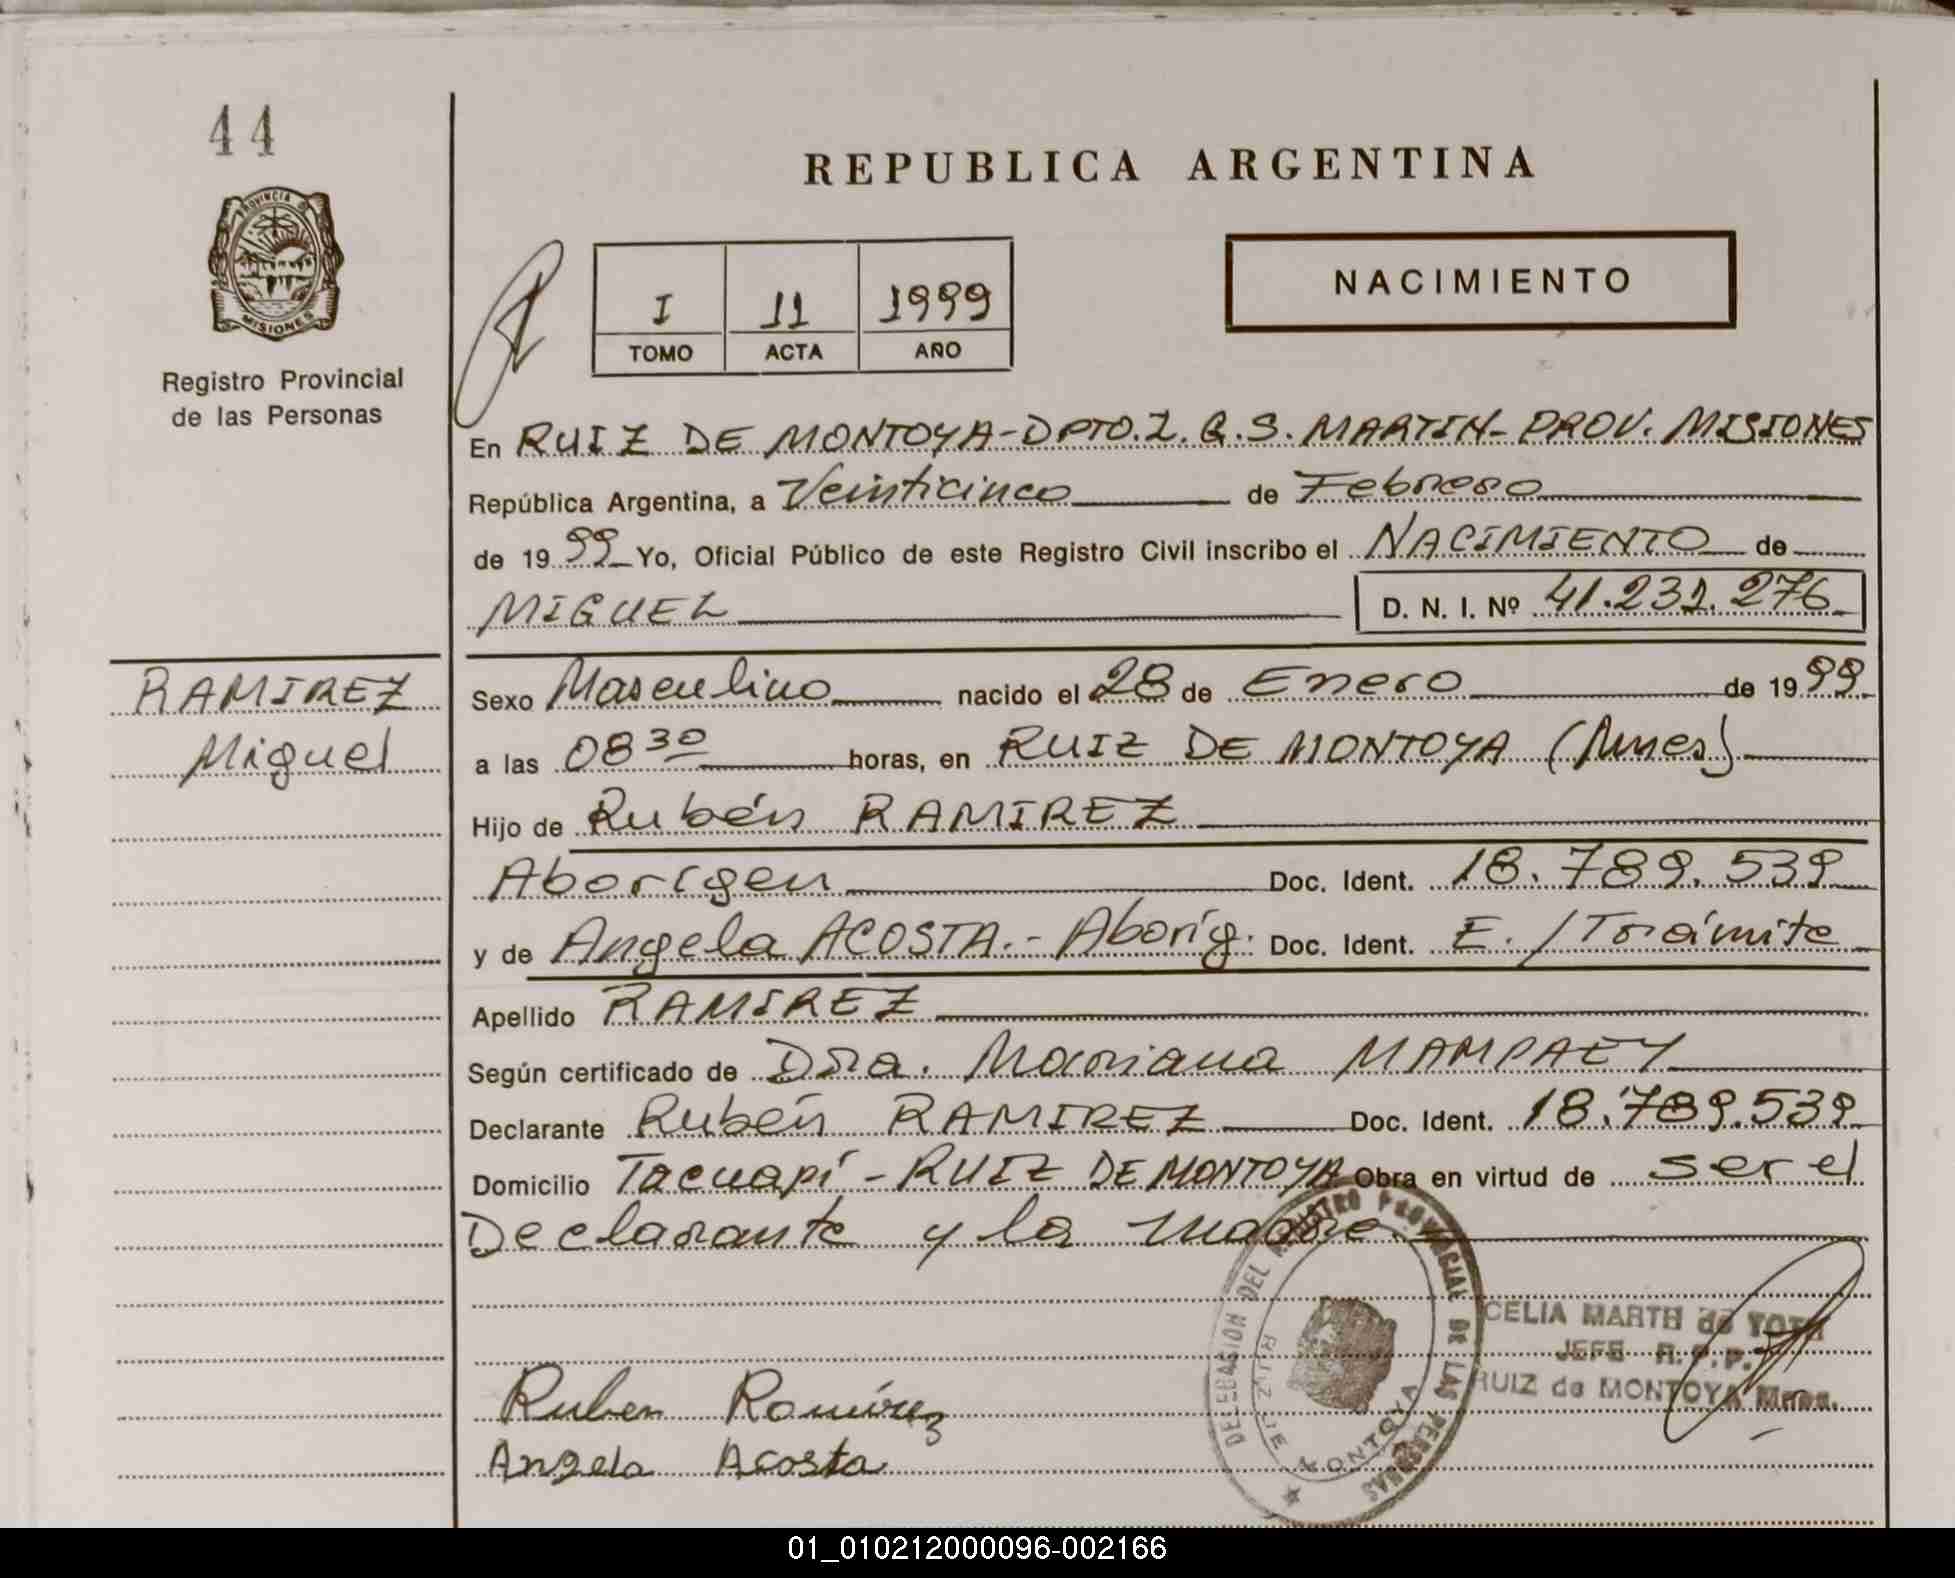 44
REPUBLICA ARGENTINA
NACIMIENTO
I 11 1999
TOMO ACTA AÑO
PROVINCIA DE
MISIONES
Registro Provincial
de las Personas
En RUIZ DE MONTOYA-DPTO.L.G.S.MARTIN-PROV.MISIONES
República Argentina, a Veinticinco de Febrero
de 1999 Yo, Oficial Público de este Registro Civil inscribo el NACIMIENTO de
MIGUEL D. N. I. Nº 41.232.276
RAMIREZ
Miguel
Sexo Masculino nacido el 28 de Enero de 1999
a las 08 30 horas, en RUIZ DE MONTOYA (Mnes)
Hijo de Rubén RAMIREZ
Aborígen Doc. Ident. 18.789.539
y de Angela ACOSTA.- Aboríg. Doc. Ident. E./Trámite
Apellido RAMIREZ
Según certificado de Dra. Mariana MAMPAEY
Declarante Rubén RAMIREZ Doc. Ident. 18.789.539
Domicilio Tacuapí - RUIZ DE MONTOYA Obra en virtud de ser el
Declarante y la madre.
DELEGACION DEL REGISTRO PROVINCIAL DE LAS PERSONAS
RUIZ DE MONTOYA
CELIA MARTH de
JEFE R.P.P.
RUIZ de MONTOYA Mnes.
Ruben Ramírez
Angela Acosta
01_010212000096-002166